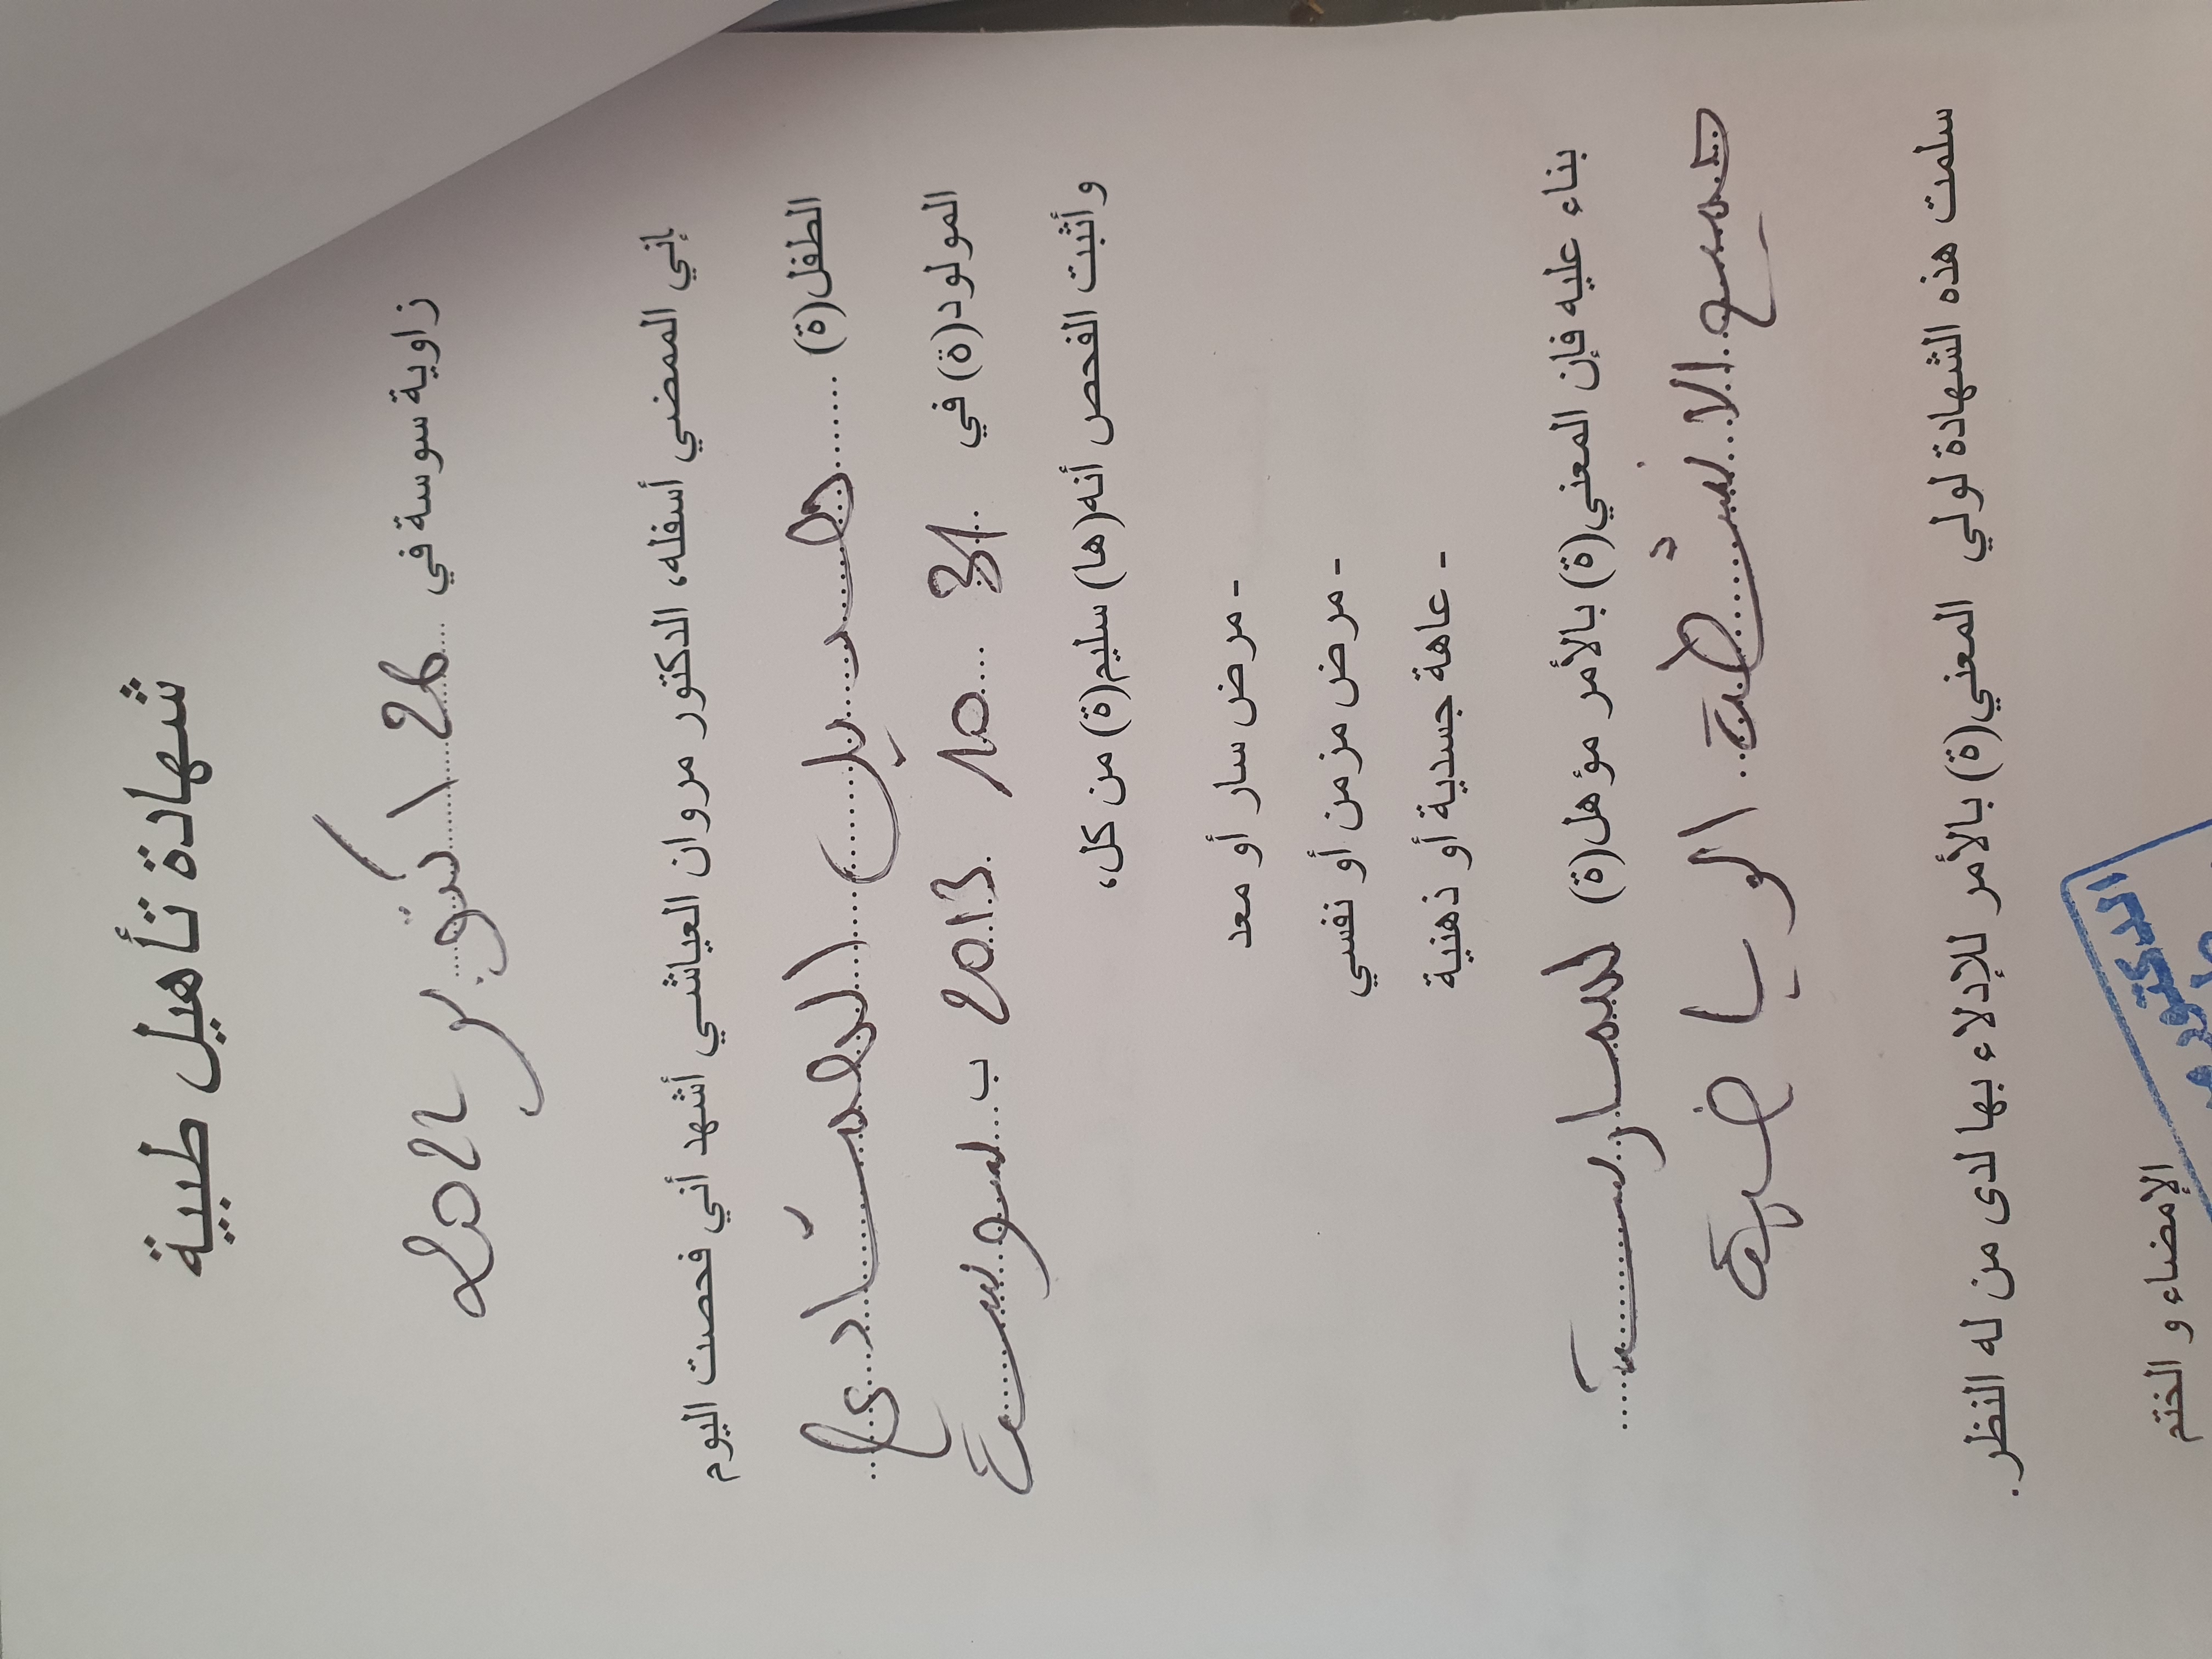 شهادة تأهيل طبية
زاوية سوسة في 26 اكتوبر 2022
إني الممضي أسفله، الدكتور مروان العياشي أشهد أني فحصت اليوم
الطفل(ة) هديل
المولود(ة) في 31 10 2013 ب سوسة
وأثبت الفحص أنه(ها) سليم(ة) من كل،
- مرض سار أو معد
- مرض مزمن أو نفسي
- عاهة جسدية أو ذهنية
بناء عليه فإن المعني(ة) بالأمر مؤهل(ة) لممارسة
جميع الانشطة الرياضية
سلمت هذه الشهادة لولي المعني(ة) بالأمر للإدلاء بها لدى من له النظر.
الإمضاء و الختم
الدكتور